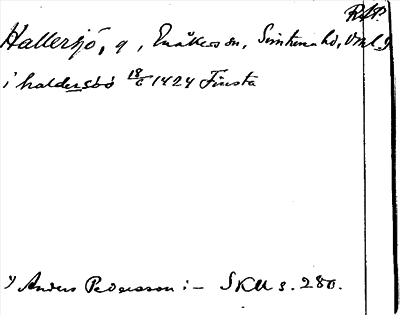 RAP.
Hallersjö, g, Enåkers sn, Simtuna hd, Uml.
i haldersbo 18/6 1424 Finsta
Anders Pedersson :- SKU s. 280.